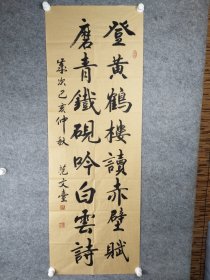 登黄鶴樓讀赤壁賦
磨青鐵硯吟白雲詩
歲次己亥仲秋
范文臺